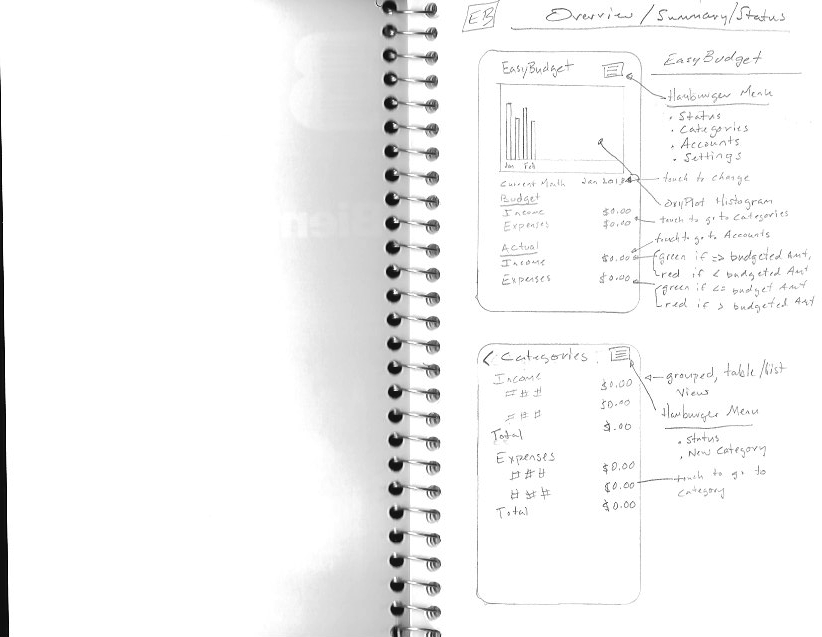 EB
Overview / Summary / Status
EasyBudget
EasyBudget
Hamburger Menu
• Status
• Categories
• Accounts
• Settings
Jan Feb
Current Month Jan 2013
touch to change
OxyPlot Histogram
Budget
Income $0.00
Expenses $0.00
touch to go to Categories
touch to go to Accounts
Actual
Income $0.00
green if => budgeted Amt,
red if < budgeted Amt
Expenses $0.00
green if <= budget Amt
red if > budgeted Amt
< Categories
Income $0.00
grouped, table/list
View
### $0.00
###
Total $.00
Hamburger Menu
• Status
• New Category
Expenses
### $0.00
### $0.00
touch to go to
category
Total $0.00